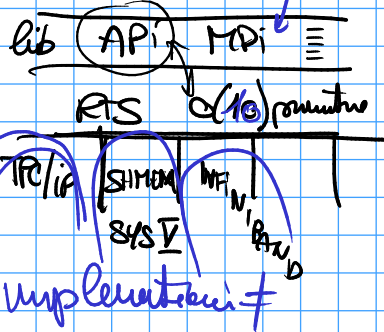 lib API MPI
RTS O(10) primitive
TPC/IP SHMEM INFINIBAND
SYS V
implementazioni ≠